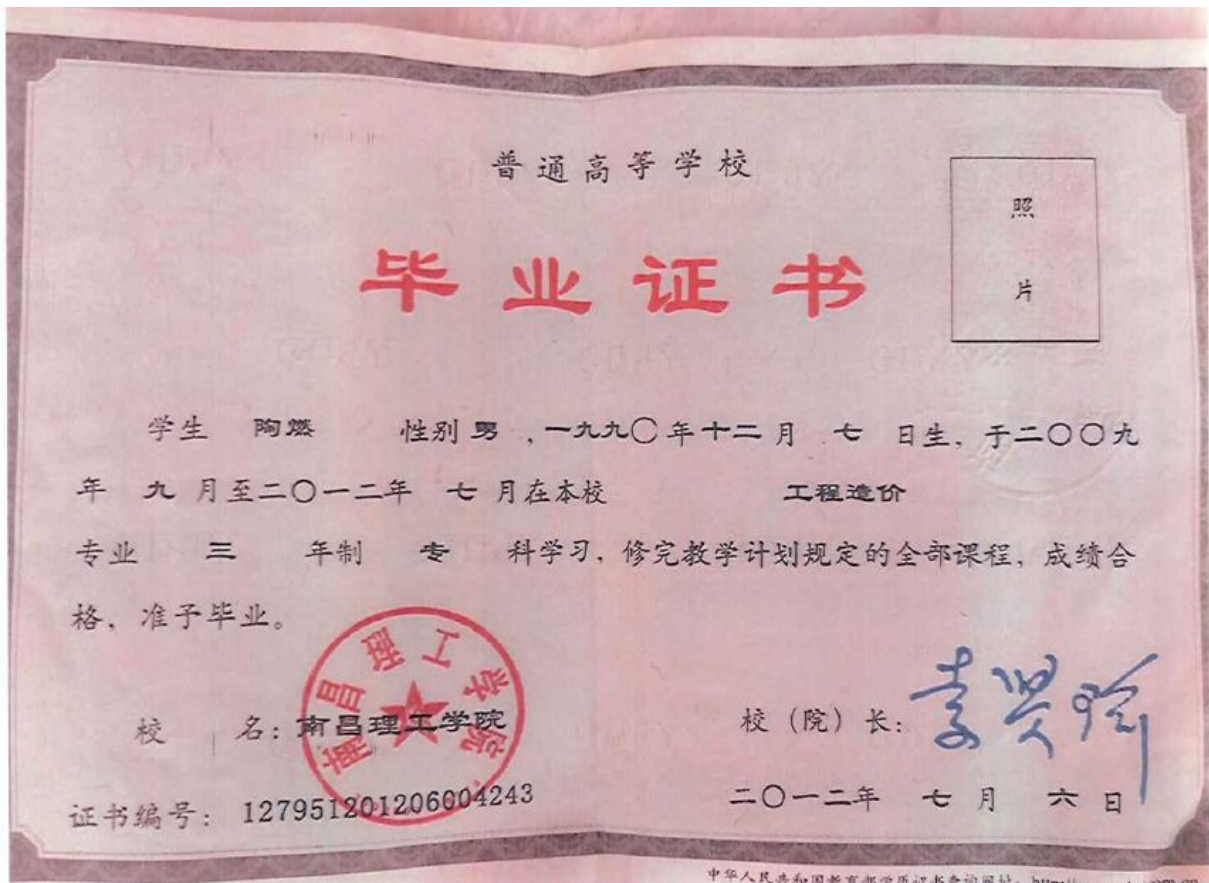 普通高等学校
照
片
毕业证书
学生 陶燃 性别 男 ,一九九〇年十二月 七 日生, 于二〇〇九
年 九 月至二〇一二年 七 月在本校 工程造价
专业 三 年制 专 科学习, 修完教学计划规定的全部课程, 成绩合
格, 准予毕业。
南昌理工学院
校 名: 南昌理工学院
校 (院) 长:
证书编号: 127951201206004243
二〇一二年 七 月 六 日
中华人民共和国教育部学历证书查询网址: